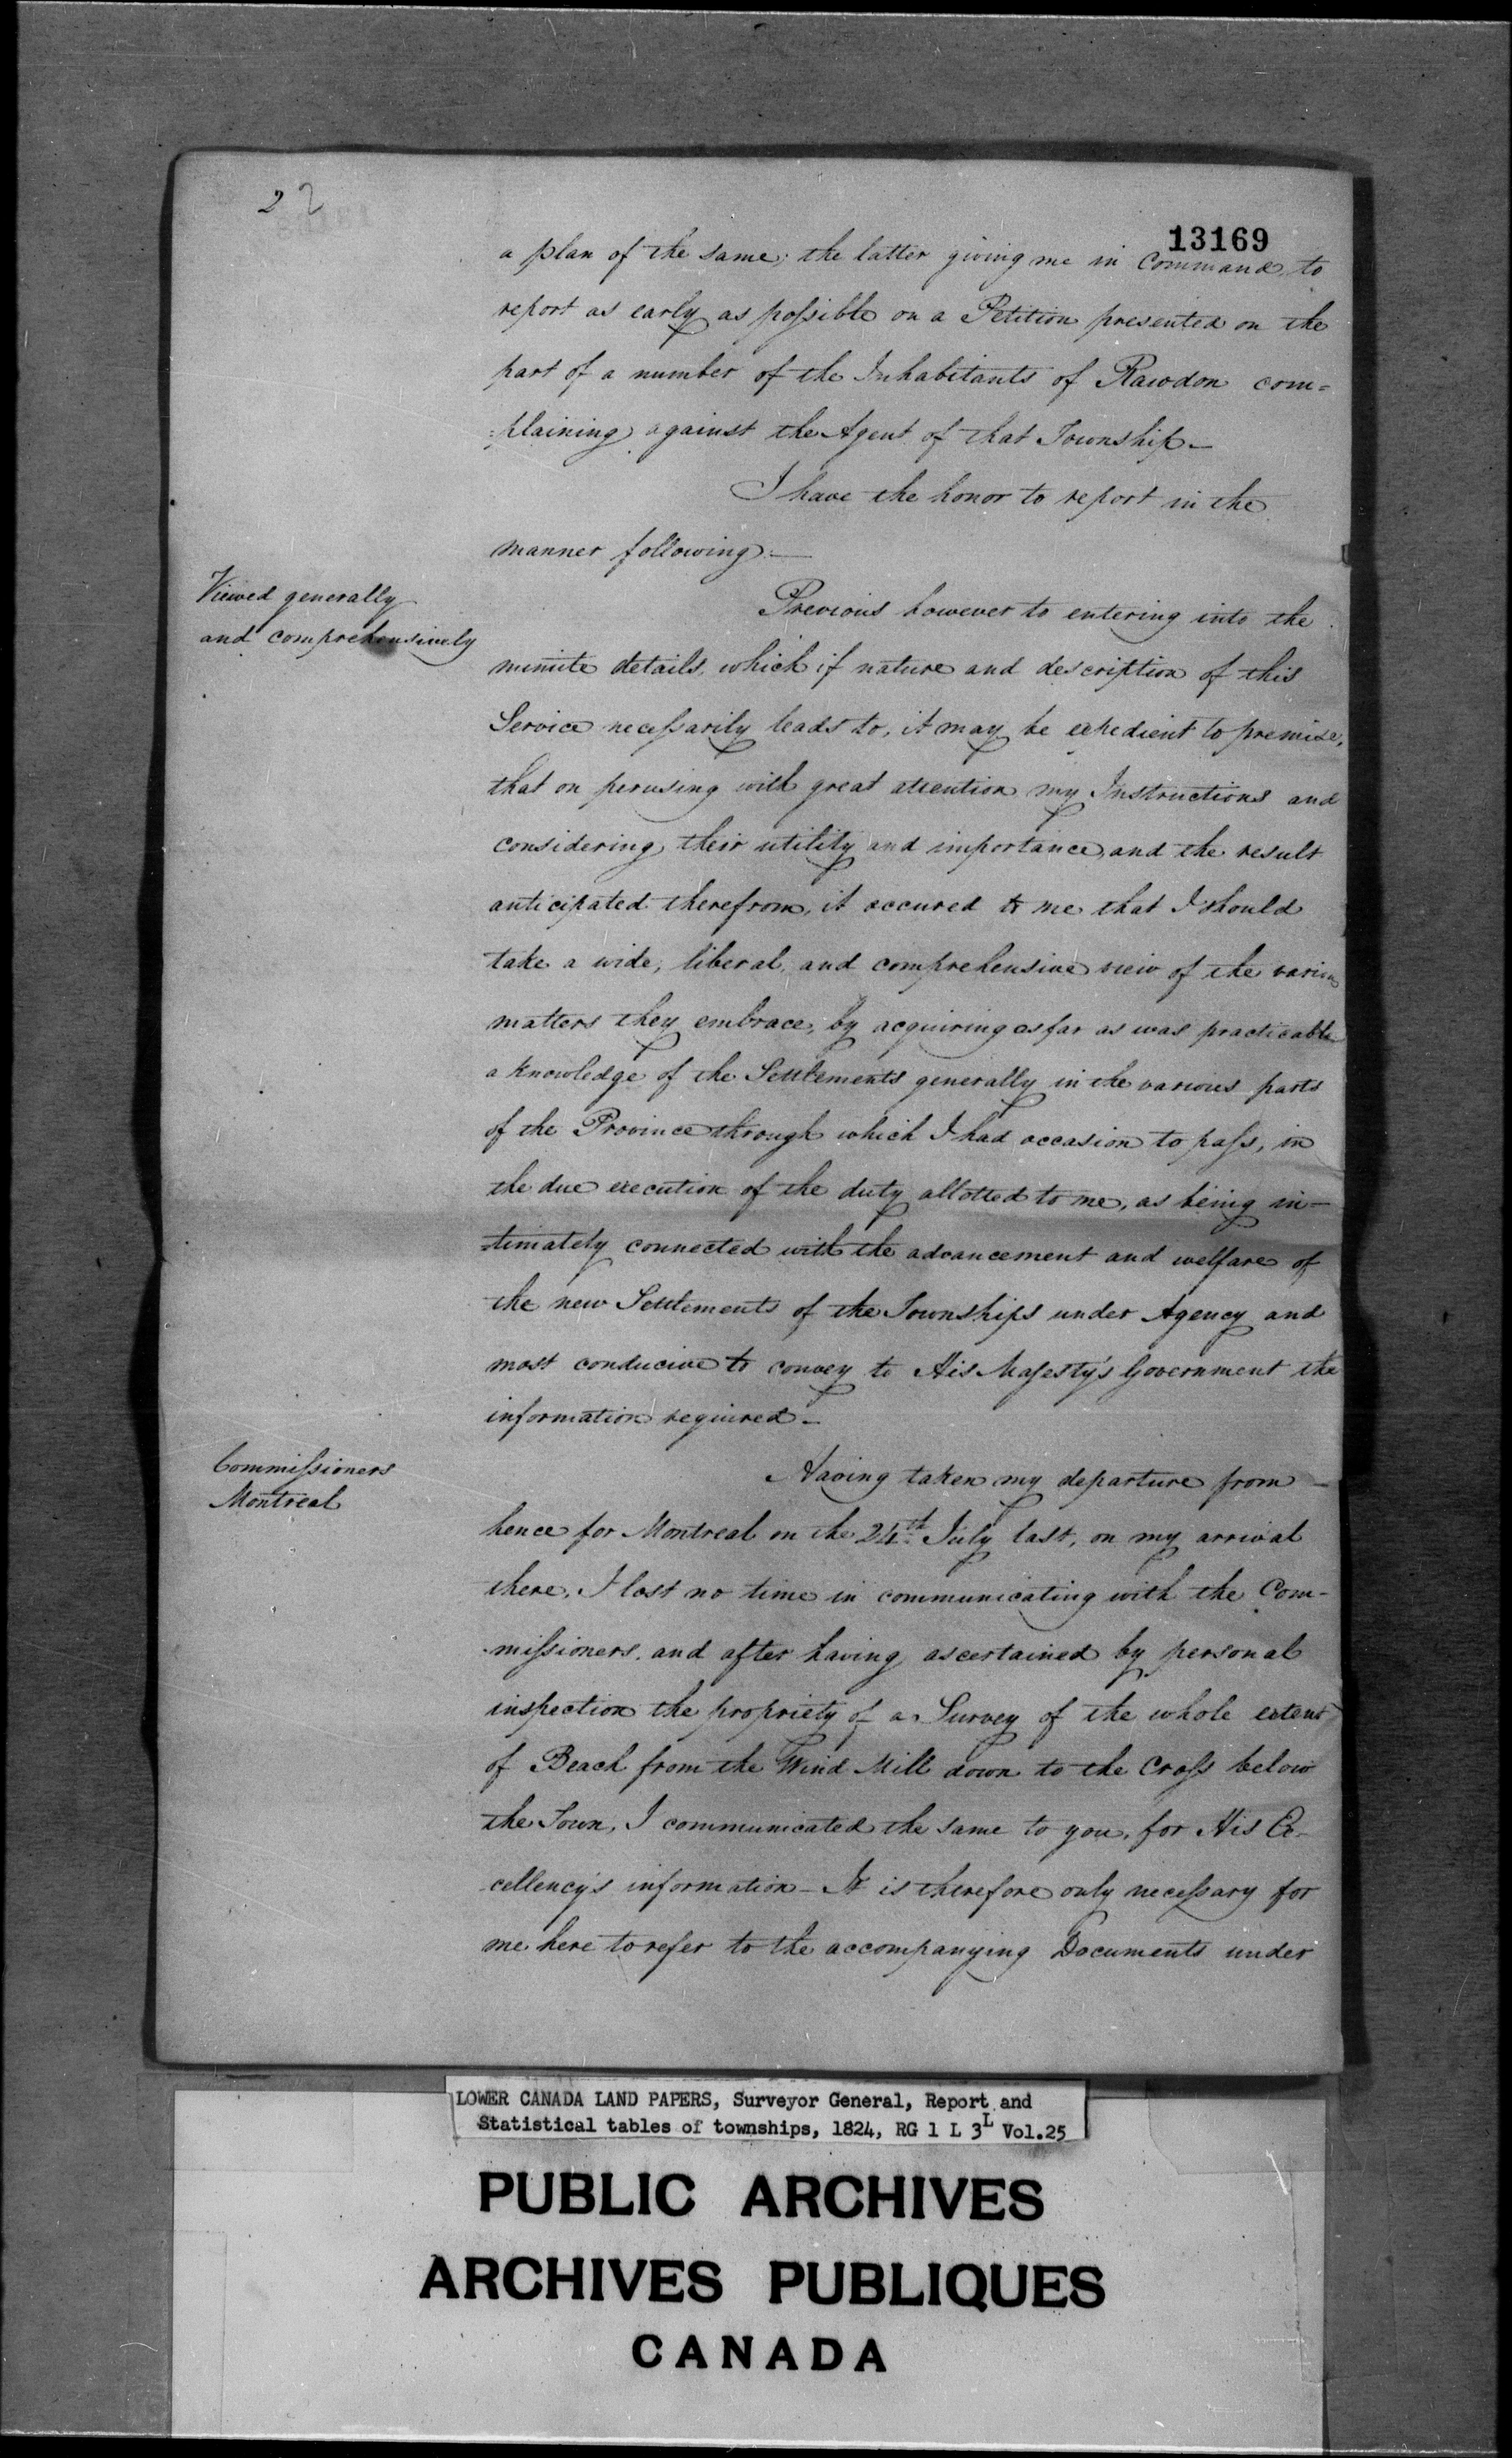 2 2
13169
a plan of the same; the latter giving me in Command, to
report as early as possible on a Petition presented on the
part of a number of the Inhabitants of Rawdon com=
=plaining against the Agent of that Township—
I have the honor to report in the
manner following:—
Viewed generally
and comprehensively
Previous however to entering into the
minute details, which if nature and description of this
Service necessarily leads to, it may be expedient to premise,
that on perusing with great attention my Instructions and
considering their utility and importance, and the result
anticipated therefrom, it occured to me that I should
take a wide, liberal, and comprehensive view of the various
matters they embrace, by acquiring as far as was practicable
a knowledge of the Settlements generally in the various parts
of the Province through which I had occasion to pass, in
the due execution of the duty allotted to me, as being in—
-timately connected with the advancement and welfare of
the new Settlements of the Townships under Agency and
most conducive to convey to His Majesty's Government the
information required—
Commissioners
Montreal
Having taken my departure from—
hence for Montreal on the 24th July last, on my arrival
there, I lost no time in communicating with the Com-
-missioners, and after having ascertained by personal
inspection the propriety of a Survey of the whole extent
of Beach from the Wind Mill down to the Cross below
the Town, I communicated the same to you, for His Ex-
-cellency's information— It is therefore only necessary for
me here to refer to the accompanying Documents under
LOWER CANADA LAND PAPERS, Surveyor General, Report and
Statistical tables of townships, 1824, RG 1 L 3L Vol.25
PUBLIC ARCHIVES
ARCHIVES PUBLIQUES
CANADA